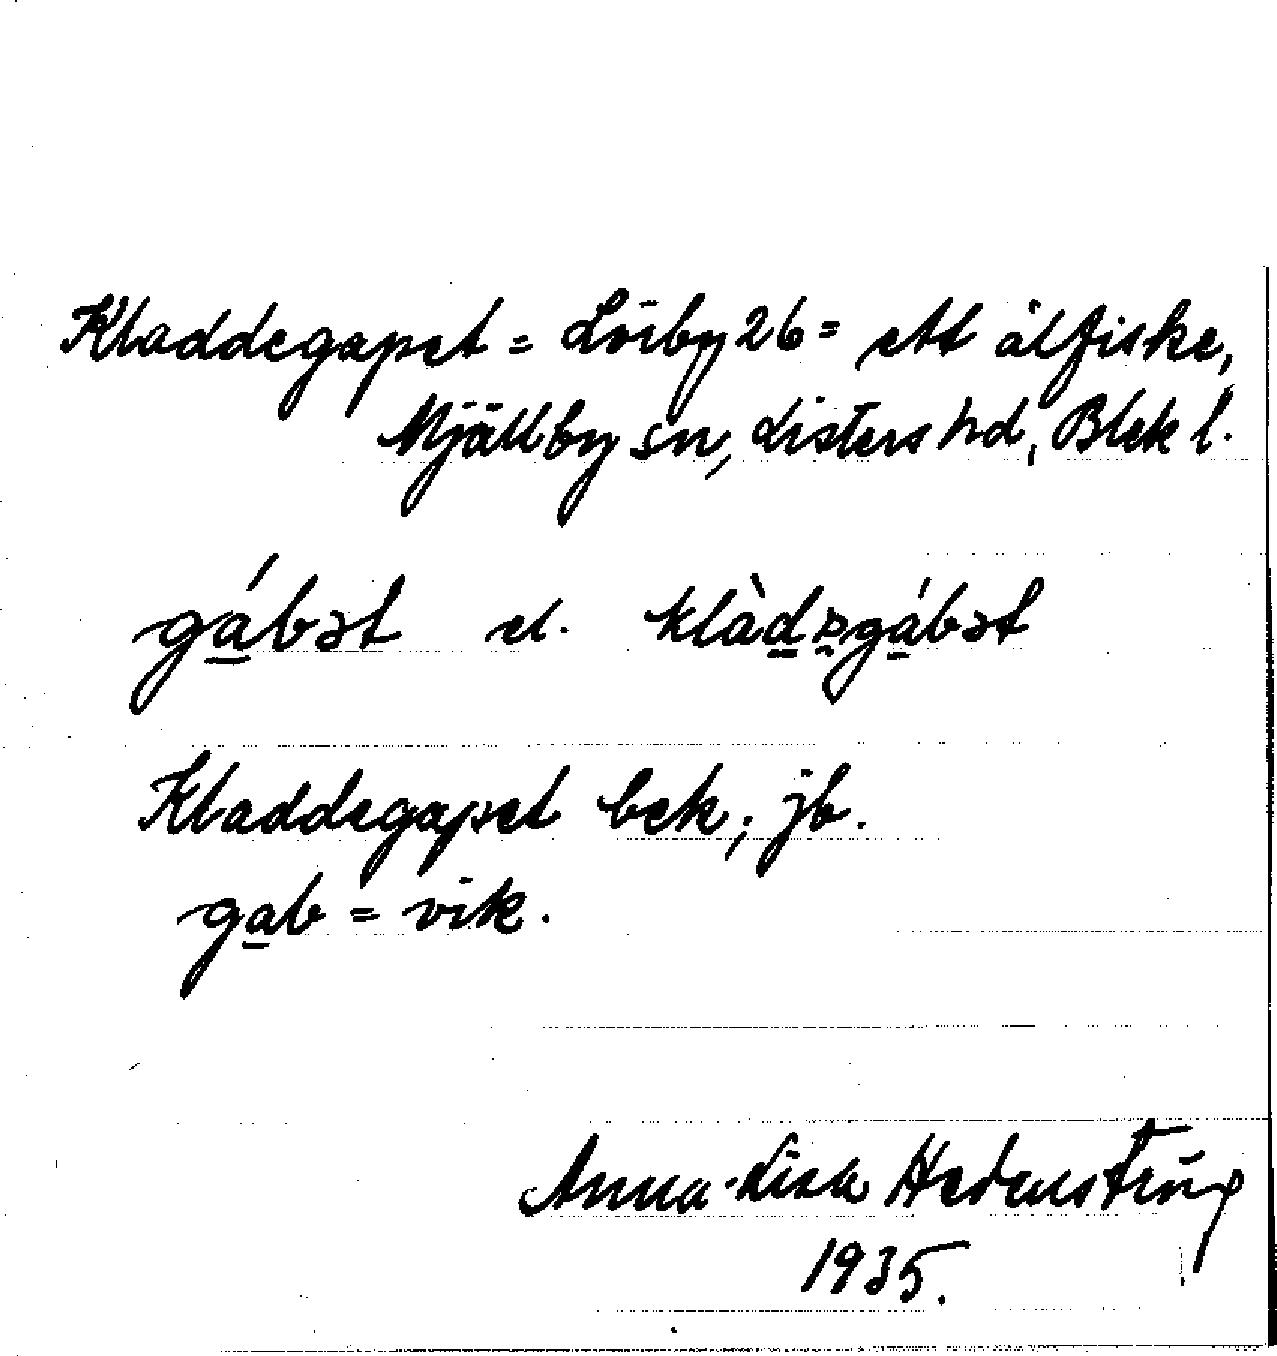 Kladdegapet = Lörby 26 = ett ålfiske,
Mjällby sn, Listers hd, Blek l.
gábət el. klàdəgábət
Kladdegapet bek; jb.
gab = vik.
Anna-Lisa Hedenstrúp
1935.